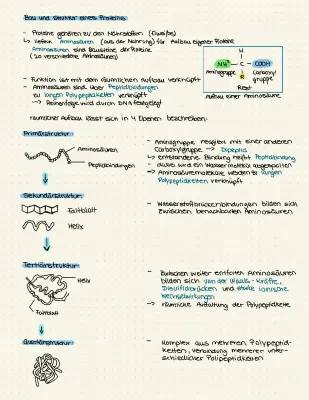 Bau und Struktur eines Proteins
- Proteine gehören zu den Nährstoffen (Eiweiße)
↳ liefern Aminosäuren (aus der Nahrung) für Aufbau eigener Proteine
Aminosäuren sind Bausteine der Proteine
(20 verschiedene Aminosäuren)
H
NH₂ — C — COOH
Aminogruppe
Carboxylgruppe
R
Rest
Aufbau einer Aminosäure
- Funktion ist mit dem räumlichen Aufbau verknüpft
- Aminosäuren sind über Peptidbindungen
zu langen Polypeptidketten verknüpft
→ Reihenfolge wird durch DNA festgelegt
räumlicher Aufbau lässt sich in 4 Ebenen beschreiben:
Primärstruktur
Aminosäuren
Peptidbindungen
- Aminogruppe reagiert mit einer anderen
Carboxylgruppe → Dipeptid
↳ entstandene Bindung heißt Peptidbindung
→ dabei wird ein Wassermolekül abgespalten
→ Aminosäuremoleküle werden zu langen
Polypeptidketten verknüpft
Sekundärstruktur
Faltblatt
Helix
- Wasserstoffbrückenbindungen bilden sich
zwischen benachbarten Aminosäuren
Tertiärstruktur
Helix
Faltblatt
- Zwischen weiter entfernten Aminosäuren
bilden sich Van der Waals-Kräfte,
Disulfidbrücken und starke ionische
Wechselwirkungen
→ räumliche Auffaltung der Polypeptidkette
Quartärstruktur
- Komplex aus mehreren Polypeptid-
ketten, Verbindung mehrerer unter-
schiedlicher Polipeptidketten